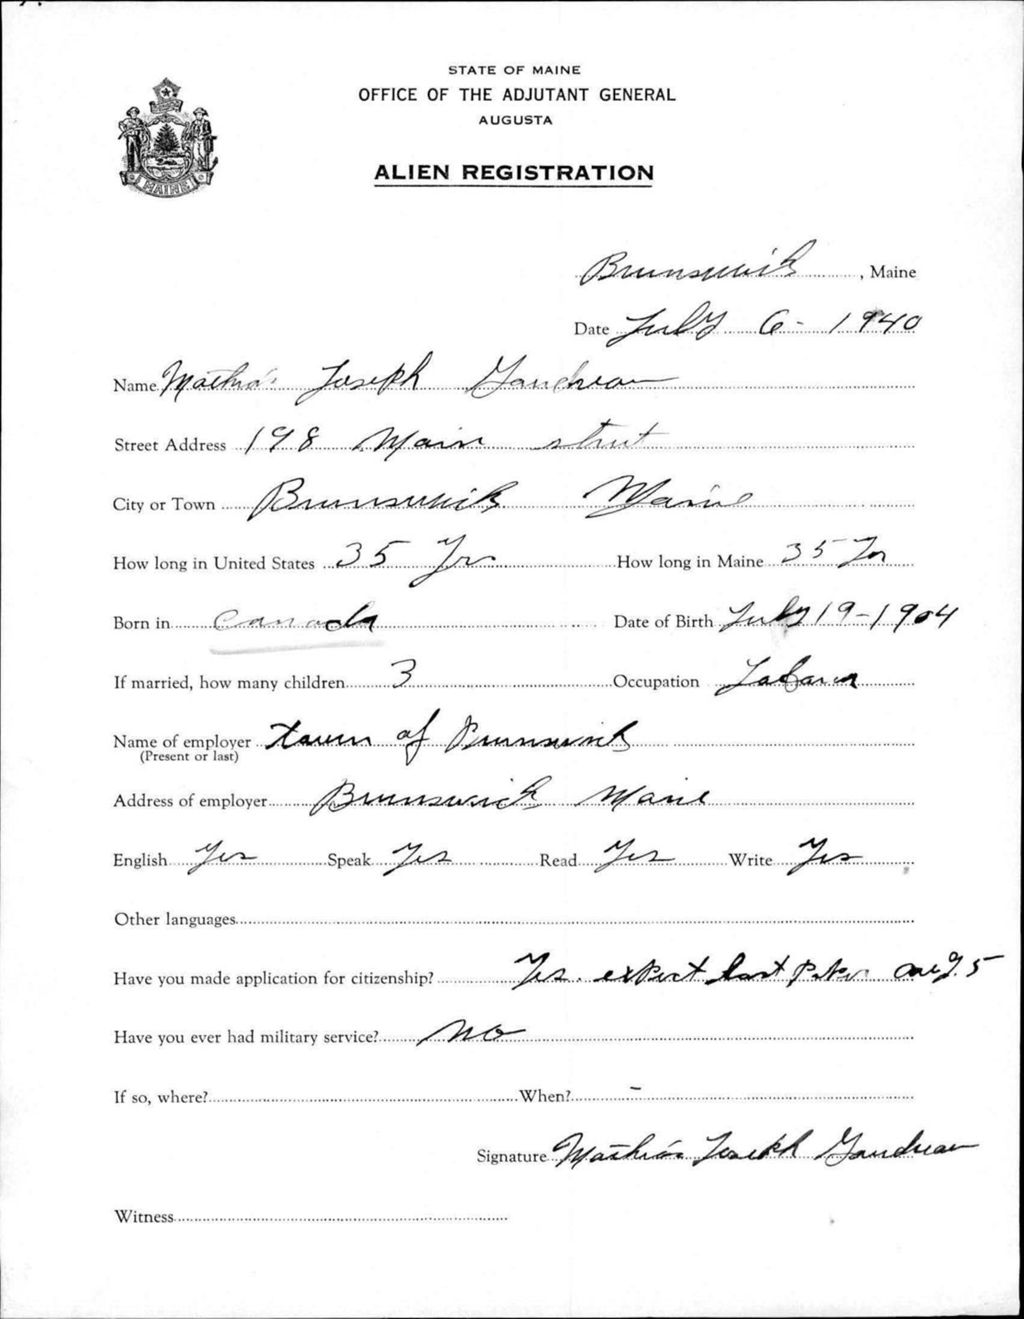 STATE OF MAINE
OFFICE OF THE ADJUTANT GENERAL
AUGUSTA
ALIEN REGISTRATION
MAINE
Brunswick, Maine
Date July 6 - 1940
Name Mathias Joseph Gaudreau
Street Address 198 Main street
City or Town Brunswick Maine
How long in United States 35 Yr How long in Maine 35 Yr
Born in Canada Date of Birth July 19 - 1904
If married, how many children 3 Occupation Laborer
Name of employer town of Brunswick
(Present or last)
Address of employer Brunswick Maine
English Yes Speak Yes Read Yes Write Yes
Other languages
Have you made application for citizenship? Yes. expect last Aug. 5
Have you ever had military service? No
If so, where? When? -
Signature Mathias Joseph Gaudreau
Witness